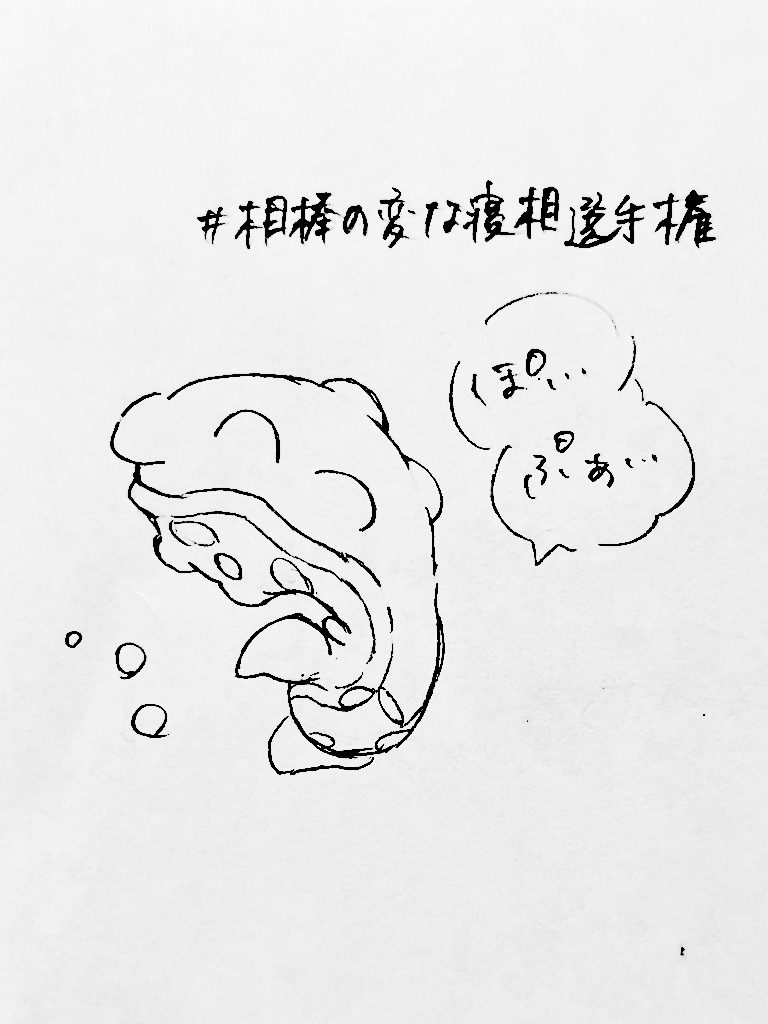 #相棒の変な寝相選手権
ぽぃ…
ぷぁ…